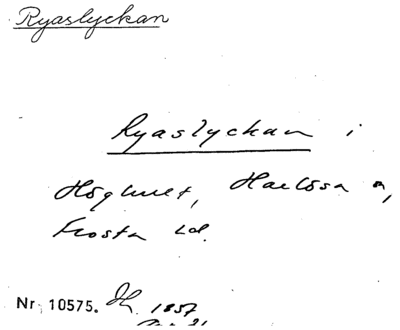 Ryaslyckan
Ryaslyckan i
Höghult, Harlösa n,
Frosta hd.
Nr 10575. 1857